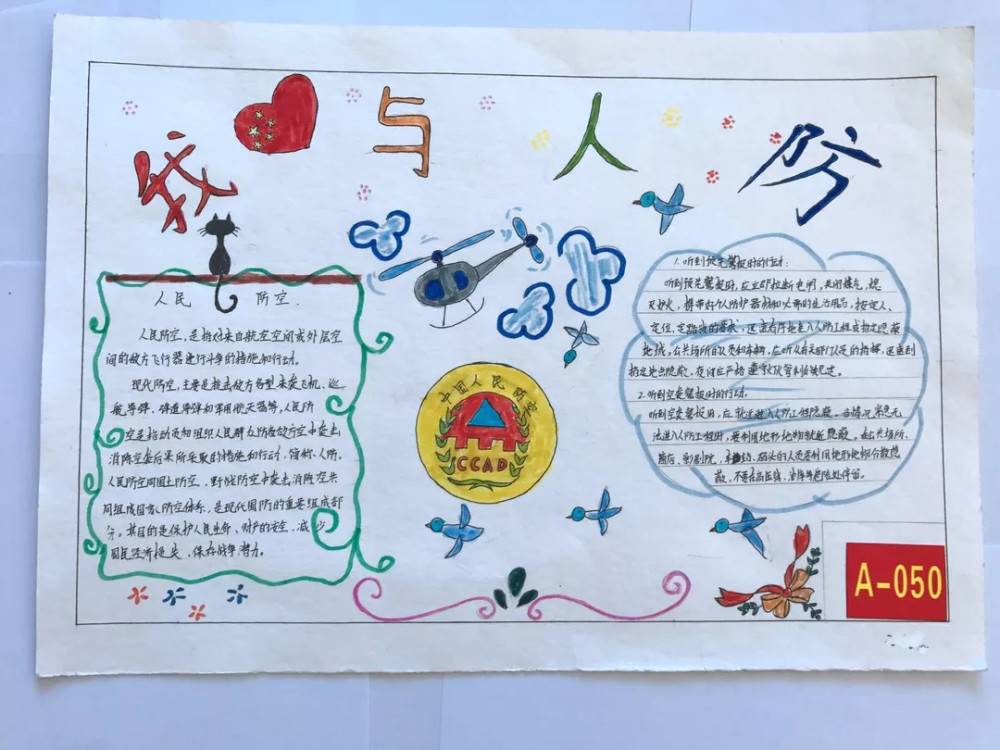 我与人防
人民防空.
人民防空,是指对来自航空空间或外层空
间的敌方飞行器进行斗争的措施和行动。
现代防空,主要是抗击敌方各型来袭飞机、巡
航导弹、弹道导弹和军用航天器等,人民防
空是指动员和组织人民群众防备敌方空中袭击
消除空袭后果所采取的措施和行动,简称人防。
人民防空同国土防空、野战防空共
同组成国家防空体系,是现代国防的重要组成部
分。其目的是保护人民生命、财产的安全、减少
国民经济损失、保存战争潜力。
中国人民防空
CCAD
1.听到预先警报时的行动:
听到预先警报时,应立即拉断电闸,关闭煤气,熄
灭炉火,携带好个人防护器材和必需的生活用品,按定人、
定位,定路线的要求,迅速有序地进入人防工程或指定隐蔽
地域,公共场所的人员和车辆,应听从有关部门人员的指挥,迅速到
指定地点隐蔽,夜间应严格遵守灯火管制的规定。
2.听到空袭警报时的行动。
听到空袭警报后,应就近进入人防工程隐蔽。当情况紧急无
法进入人防工程时,要利用地形地物就近隐蔽,在公共场所、
商店、影剧院、车站、码头的人员要利用地形地物分散隐
蔽,不要在高压线、油库等危险处停留。
A-050